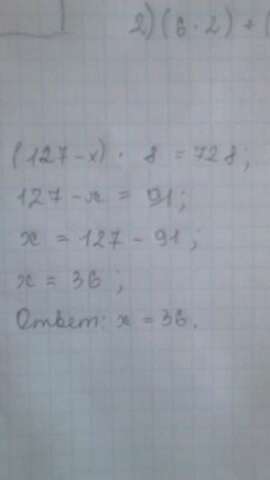 2) (6 · 2) + (
(127 - x) · 8 = 728;
127 - x = 91;
x = 127 - 91;
x = 36;
Ответ: x = 36.